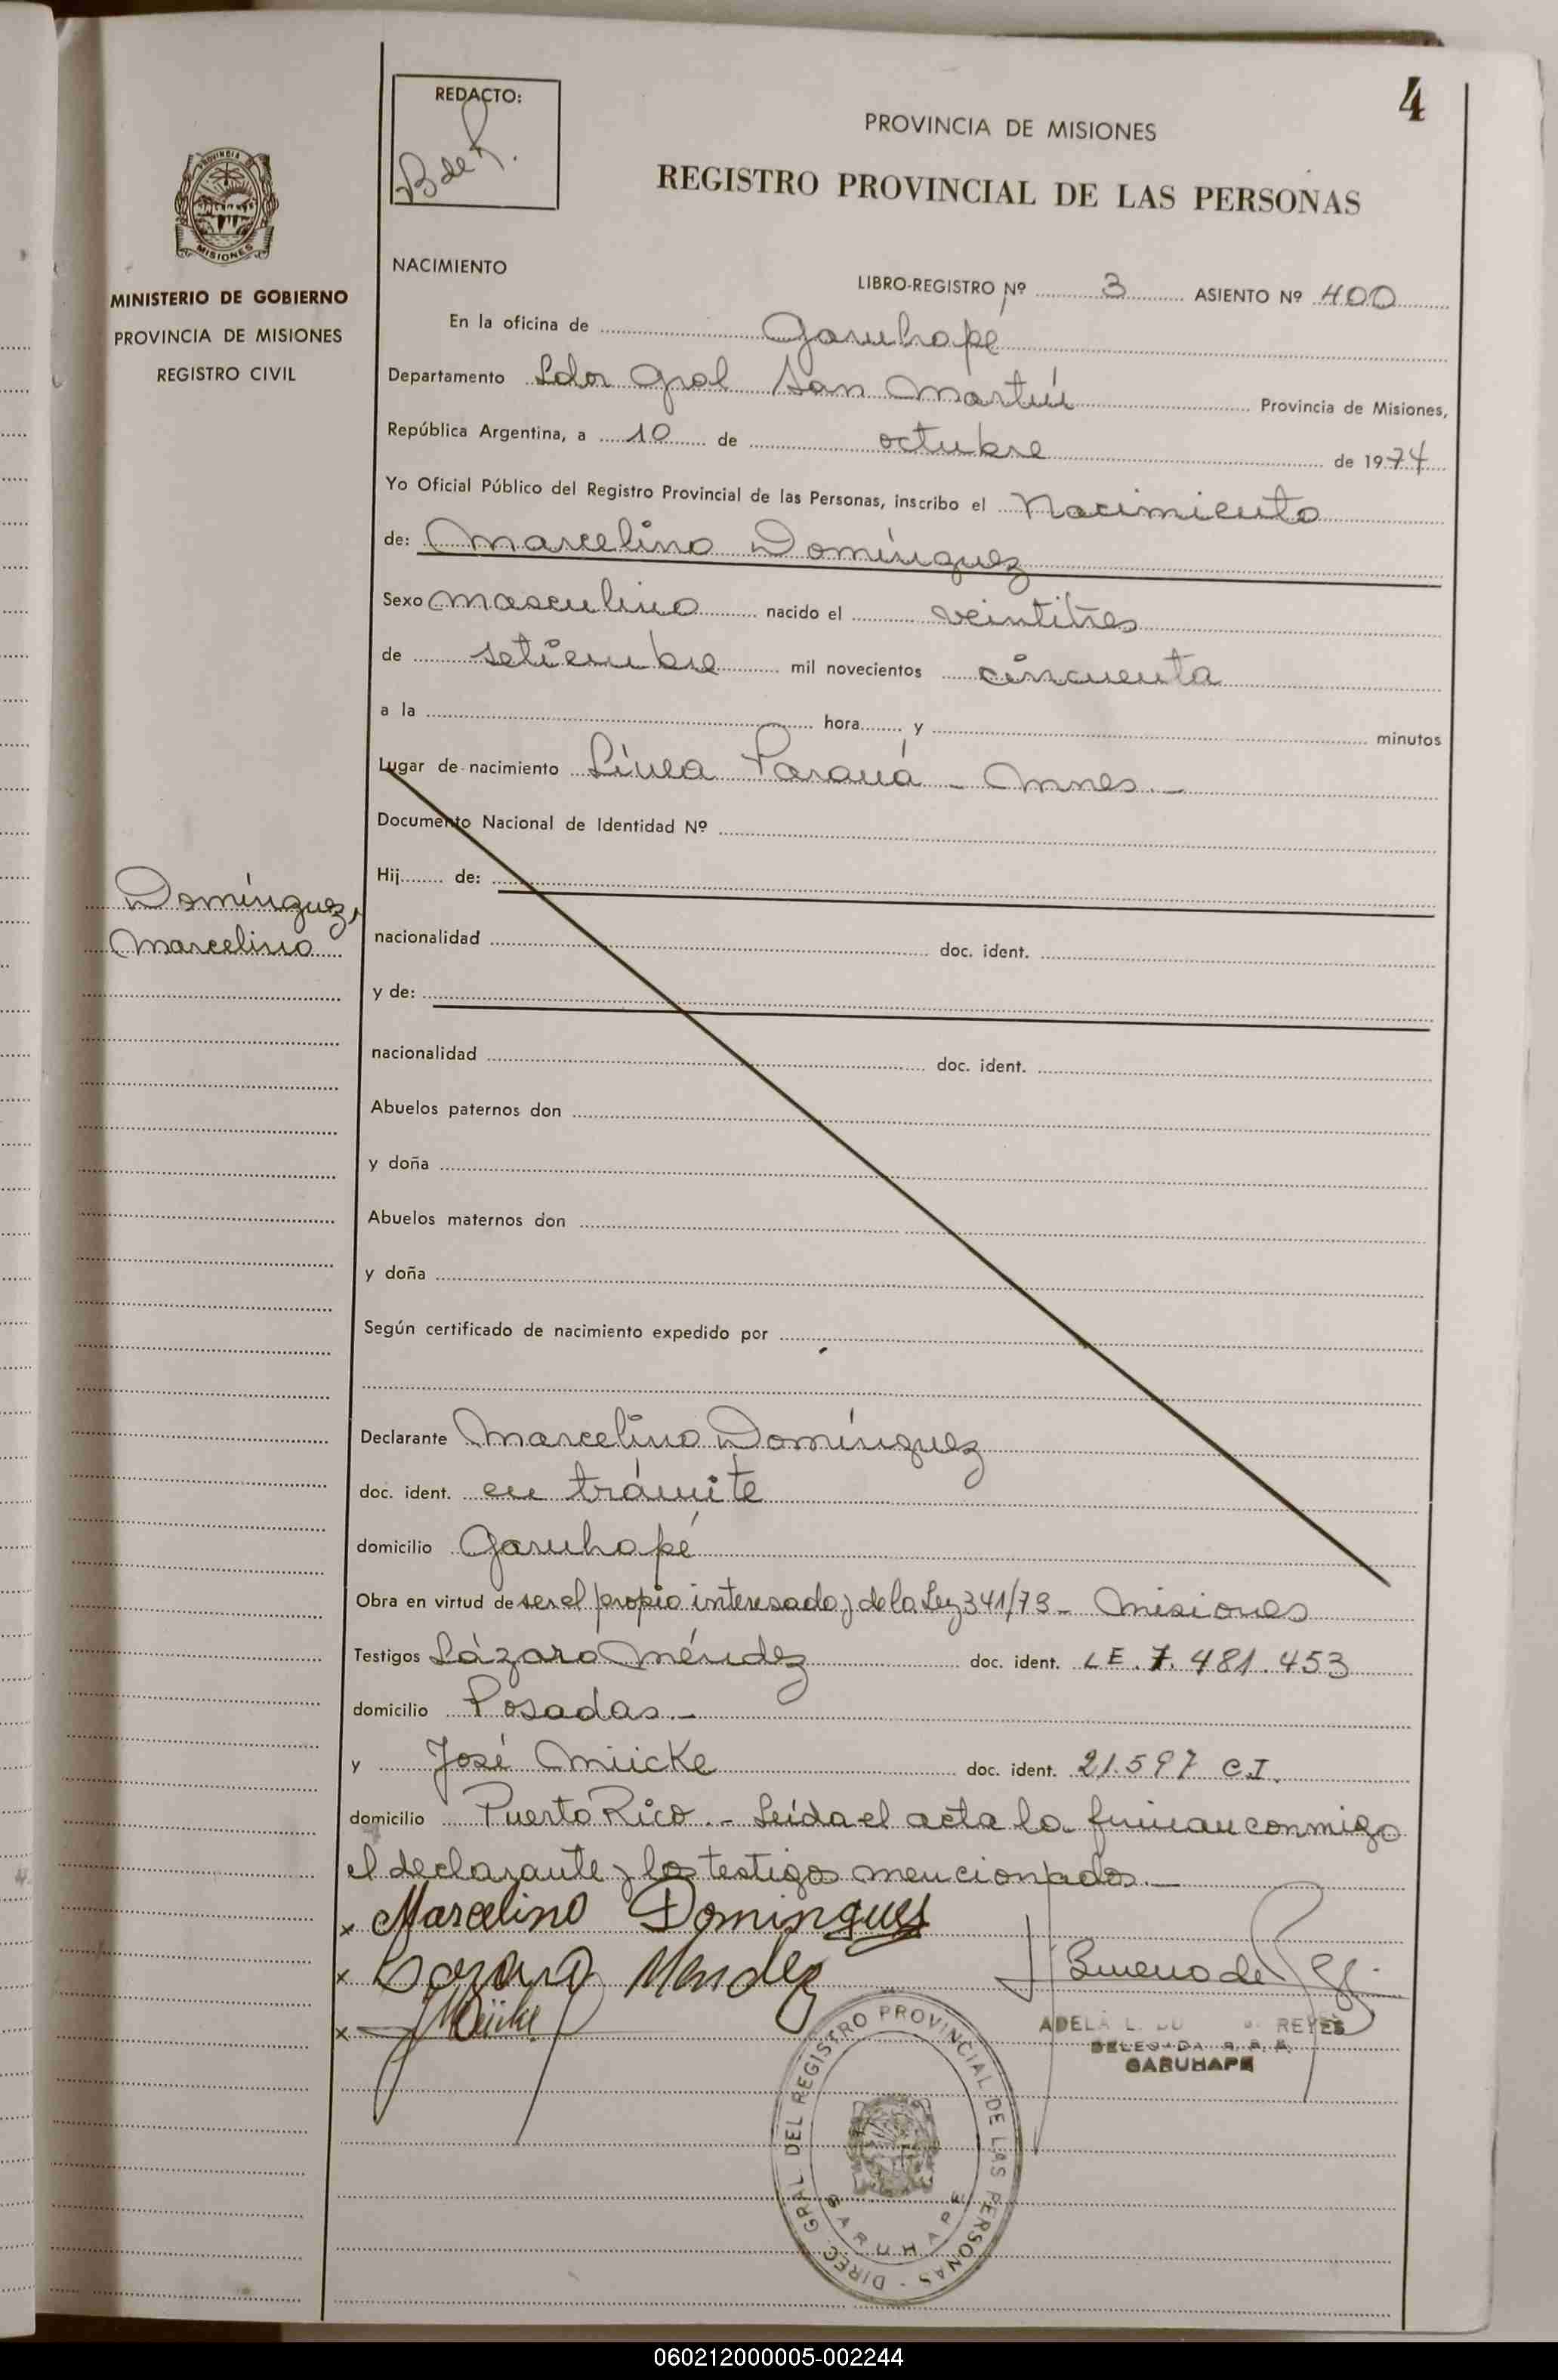 4
REDACTO:
B de R.
PROVINCIA DE MISIONES
REGISTRO PROVINCIAL DE LAS PERSONAS
PROVINCIA
MISIONES
MINISTERIO DE GOBIERNO
PROVINCIA DE MISIONES
REGISTRO CIVIL
NACIMIENTO
LIBRO-REGISTRO Nº 3 ASIENTO Nº 400
En la oficina de Garuhapé
Departamento Ldor Gral San Martín Provincia de Misiones,
República Argentina, a 10 de octubre de 1974
Yo Oficial Público del Registro Provincial de las Personas, inscribo el Nacimiento
de: Marcelino Domínguez
Sexo masculino nacido el veintitres
de setiembre mil novecientos cincuenta
a la hora y minutos
Lugar de nacimiento Línea Paraná - Mnes.-
Documento Nacional de Identidad Nº
Hij de:
Domínguez,
Marcelino
nacionalidad doc. ident.
y de:
nacionalidad doc. ident.
Abuelos paternos don
y doña
Abuelos maternos don
y doña
Según certificado de nacimiento expedido por
Declarante Marcelino Domínguez
doc. ident. en trámite
domicilio Garuhapé
Obra en virtud de ser el propio interesado y de la Ley 341/73 - Misiones
Testigos Lázaro Méndez doc. ident. LE. 7. 481. 453
domicilio Posadas.-
y José Mücke doc. ident. 21.597 C.I.
domicilio Puerto Rico.- Leída el acta la firman conmigo
el declarante y los testigos mencionados.-
x Marcelino Domingues
x Lazaro Mendez
x J Mücke
ABueno de Reyes
ADELA L. REYES
DELEGADA R. P. P.
GARUHAPE
DIREC. GRAL. DEL REGISTRO PROVINCIAL DE LAS PERSONAS -
GARUHAPE
060212000005-002244